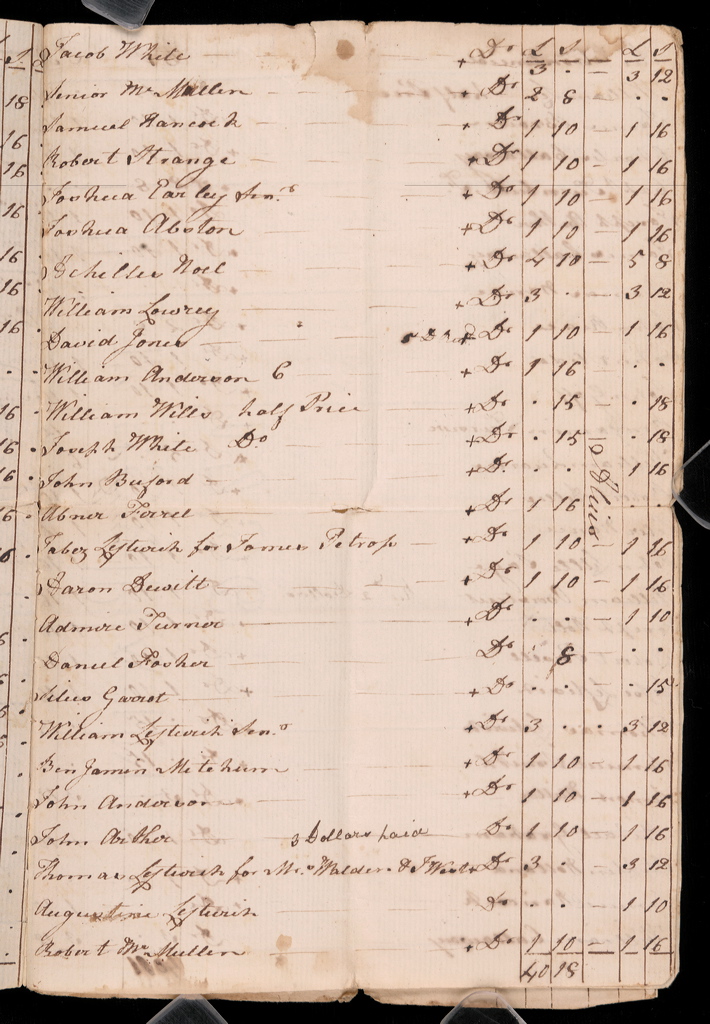 £ S £ S
Jacob White + Do 3 . — 3 12
Senior Mc Mullen + Do 2 8 . .
Samuel Hancock + Do 1 10 — 1 16
Robert Strange + Do 1 10 — 1 16
Joshua Earley Senr + Do 1 10 — 1 16
Joshua Abston + Do 1 10 — 1 16
Achilles Noel + Do 4 10 — 5 8
William Lowrey + Do 3 . — 3 12
David Jones + Do 1 10 — 1 16
William Anderson C + Do 1 16 . .
William Wills half Price + Do . 15 — . 18
Joseph White Do + Do . 15 — . 18
John Buford + Do . . 1 16
Abner Ferrel + Do 1 16 . .
Jabez Leftwich for James Petross + Do 1 10 — 1 16
Aaron Dewitt + Do 1 10 — 1 16
Admire Turner + Do . . — 1 10
Daniel Fosher Do . 8 . .
Silus Garrot + Do . . . 15
William Leftwich Senr + Do 3 . . 3 12
Benjamin Mitchum + Do 1 10 — 1 16
John Anderson + Do 1 10 — 1 16
John Arther 3 Dollars paid Do 1 10 1 16
Thomas Leftwich for Mrs Walden & J West + Do 3 . — 3 12
Augustine Leftwich Do . . 1 10
Robert Mc Mullen + Do 1 10 — 1 16
40 18